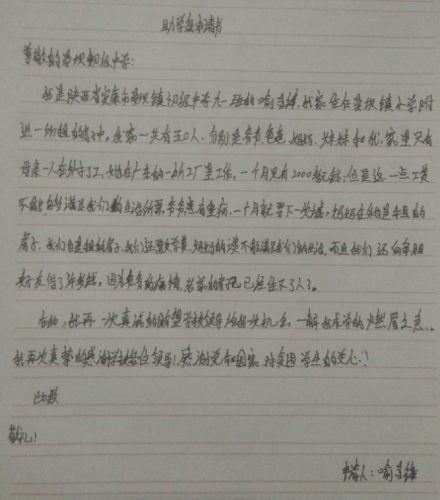 助学金申请书
尊敬的 坝初级中学:
我是陕西省安康市 坝镇初级中学九一班的喻 ,我家住在 坝镇小学附
近一份租的 中,我家一共有五口人,分别是爷爷,爸爸,妈妈,妹妹和我,家里只有
母亲一人在外打工,她在广东的一所工厂里工作,一个月只有2000 钱,但是这一点工资
不能够满足我们的生活所需,爷爷患有重病,一个月就要下一次 ,
房子,我们自 租的房子,我们还要交学费,妈妈的 不能满足我们的生活,而且我们还向亲朋
好友借了许多钱,因为爷爷的病情,爸爸的 已经 不了人了。
在此,我再一次真诚的期望学校领导给我一次机会,一解我求学的燃眉之急。
我再次真挚的感谢学校各位领导!感谢党和国家对贫困学生的关心!
此致
敬礼!
申请人:喻